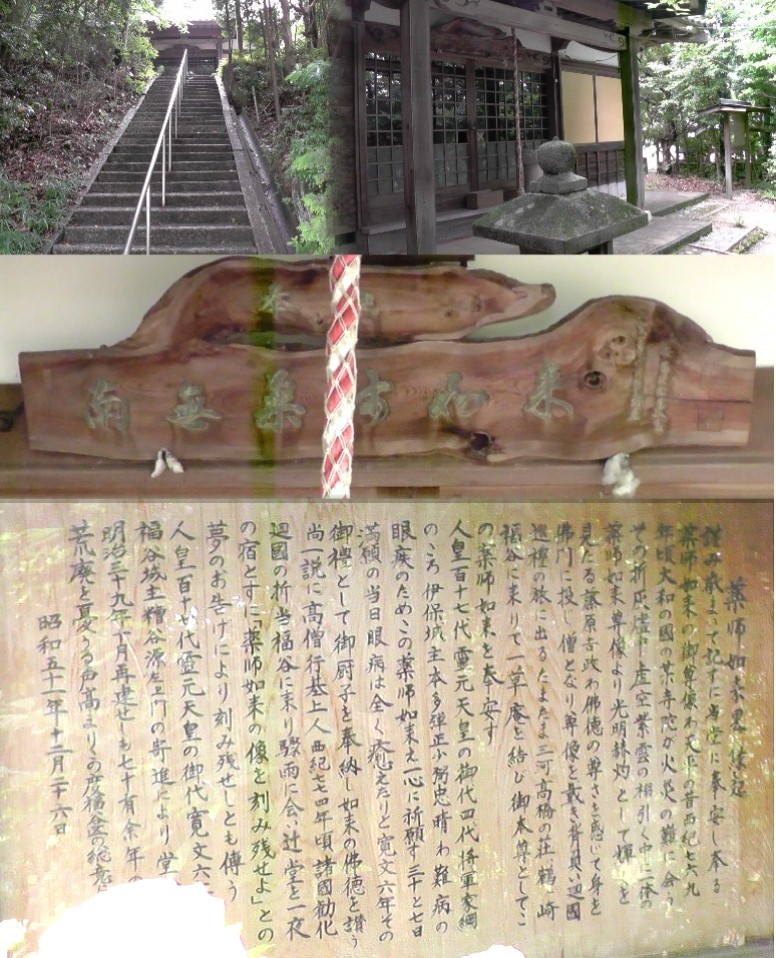 南無薬師如来
薬師如来略縁起
謹み敬まって記すに當堂に奉安し奉る
薬師如来の御尊像わ天平の昔西紀七六九
年頃大和の國の某寺院が火災の難に會う
その折灰燼中虚空紫雲の棚引く中二体の
薬師如来尊像より光明赫灼として輝くを
見たる藤原吉政わ佛徳の尊さを感いて身を
佛門に投し僧となり尊像を戴き背負い廻國
巡禮の旅に出るたまたま三河高橋の荘鶴ヶ崎
福谷に来りて一草庵を結び御本尊としてこ
の薬師如来を奉安す
人皇百十七代靈元天皇の御代四代将軍家綱
のころ伊保城主本多彈正少弼忠晴わ難病の
眼疾のためこの薬師如来え一心に祈願す三十と七日
満願の当日眼病は全く癒えたりと寛文六年その
御禮として御厨子を奉納し如来の佛徳を讃う
尚一説に高僧行基上人西紀七七四年頃諸國勧化
廻國の折当福谷に来り驟雨に会い辻堂を一夜
の宿とすに「薬師如来の像を刻み残せよ」との
夢のお告げにより刻み残せしとも傳う
人皇百十七代靈元天皇の御代寛文六
福谷城主糟谷源左ヱ門の寄進により堂
明治三十九年十月再建せしも七十有余年の
荒廃を憂うる声高まりこの度福谷の総意
昭和五十一年十二月二十六日